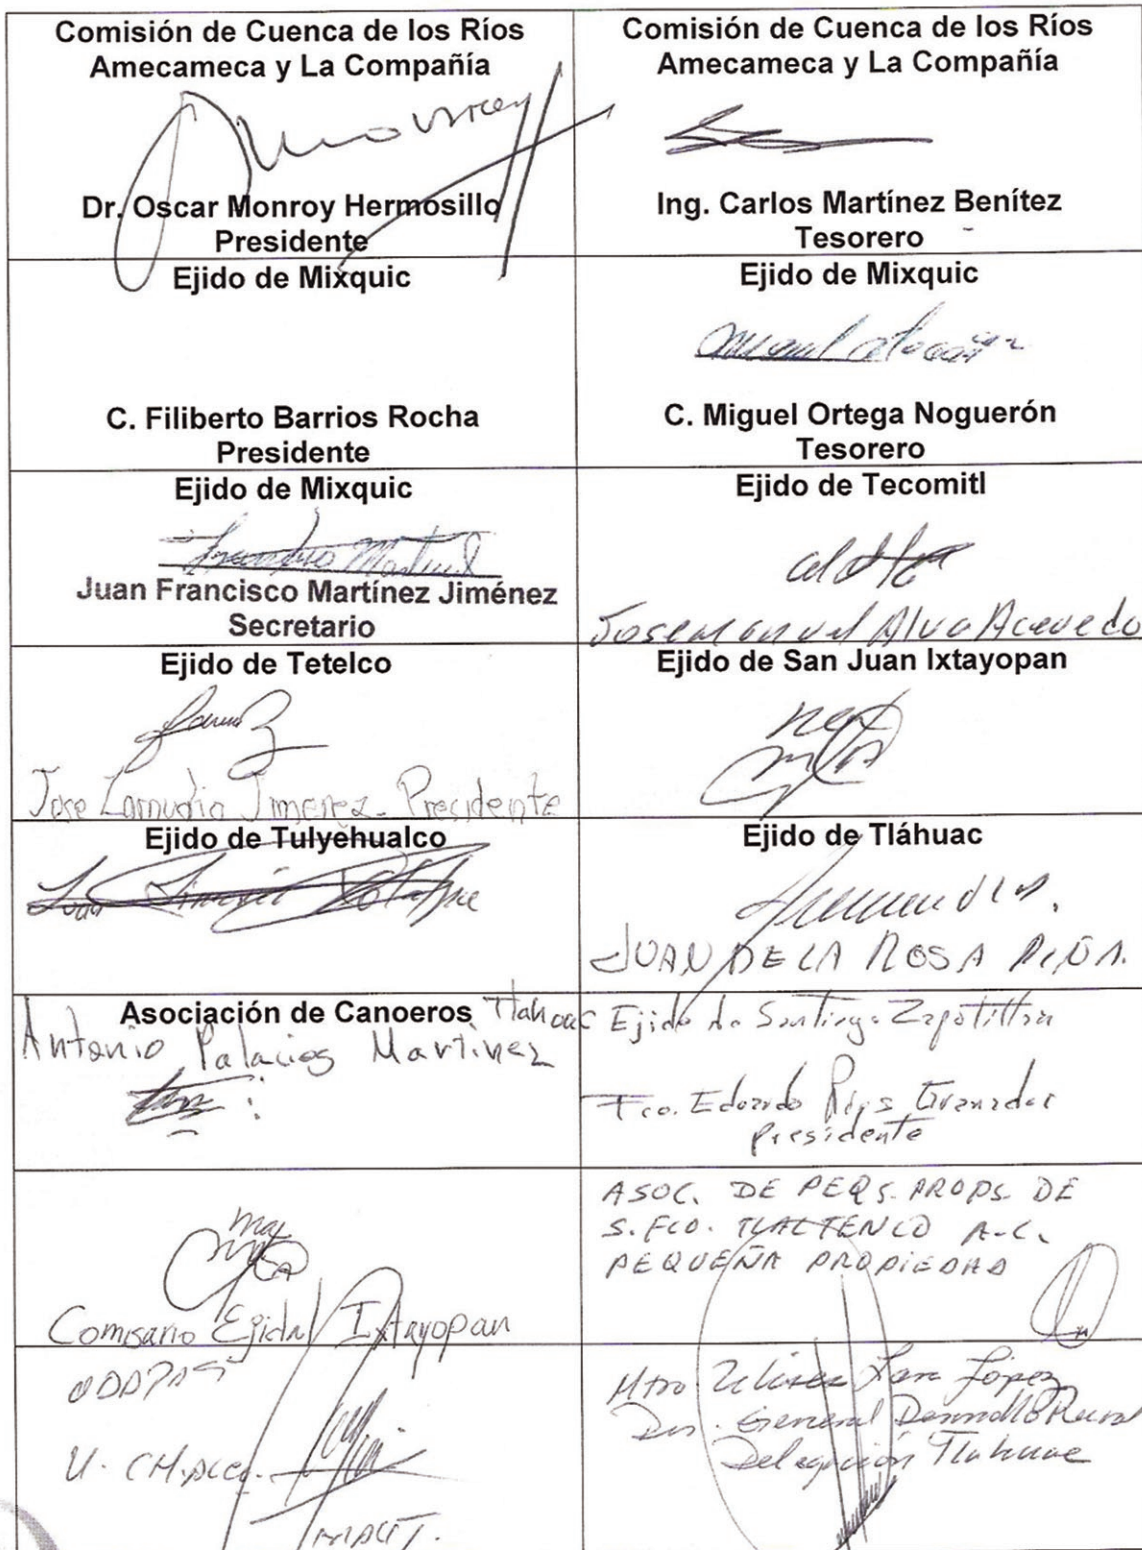 Comisión de Cuenca de los Ríos
Amecameca y La Compañía
Dr. Oscar Monroy Hermosillo
Presidente
Comisión de Cuenca de los Ríos
Amecameca y La Compañía
Ing. Carlos Martínez Benítez
Tesorero
Ejido de Mixquic
C. Filiberto Barrios Rocha
Presidente
Ejido de Mixquic
C. Miguel Ortega Noguerón
Tesorero
Ejido de Mixquic
Juan Francisco Martínez Jiménez
Secretario
Ejido de Tecomitl
Jose Manuel Alva Acevedo
Ejido de Tetelco
Jose Zamudio Jimenez - Presidente
Ejido de San Juan Ixtayopan
Ejido de Tulyehualco
Ejido de Tláhuac
JUAN DE LA ROSA PIÑA.
Asociación de Canoeros Tlahuac
Antonio Palacios Martinez
Ejido de Santiago Zapotitlan
Fco. Edoardo Granados
presidente
Comisario Ejidal Ixtayopan
ASOC. DE PEQS. PROPS. DE
S. FCO. TLALTENCO A.C.
PEQUEÑA PROPIEDAD
ODAPAS
Mtro Ulises Lara López
General Desarrollo Rural
Delegación Tlahuac